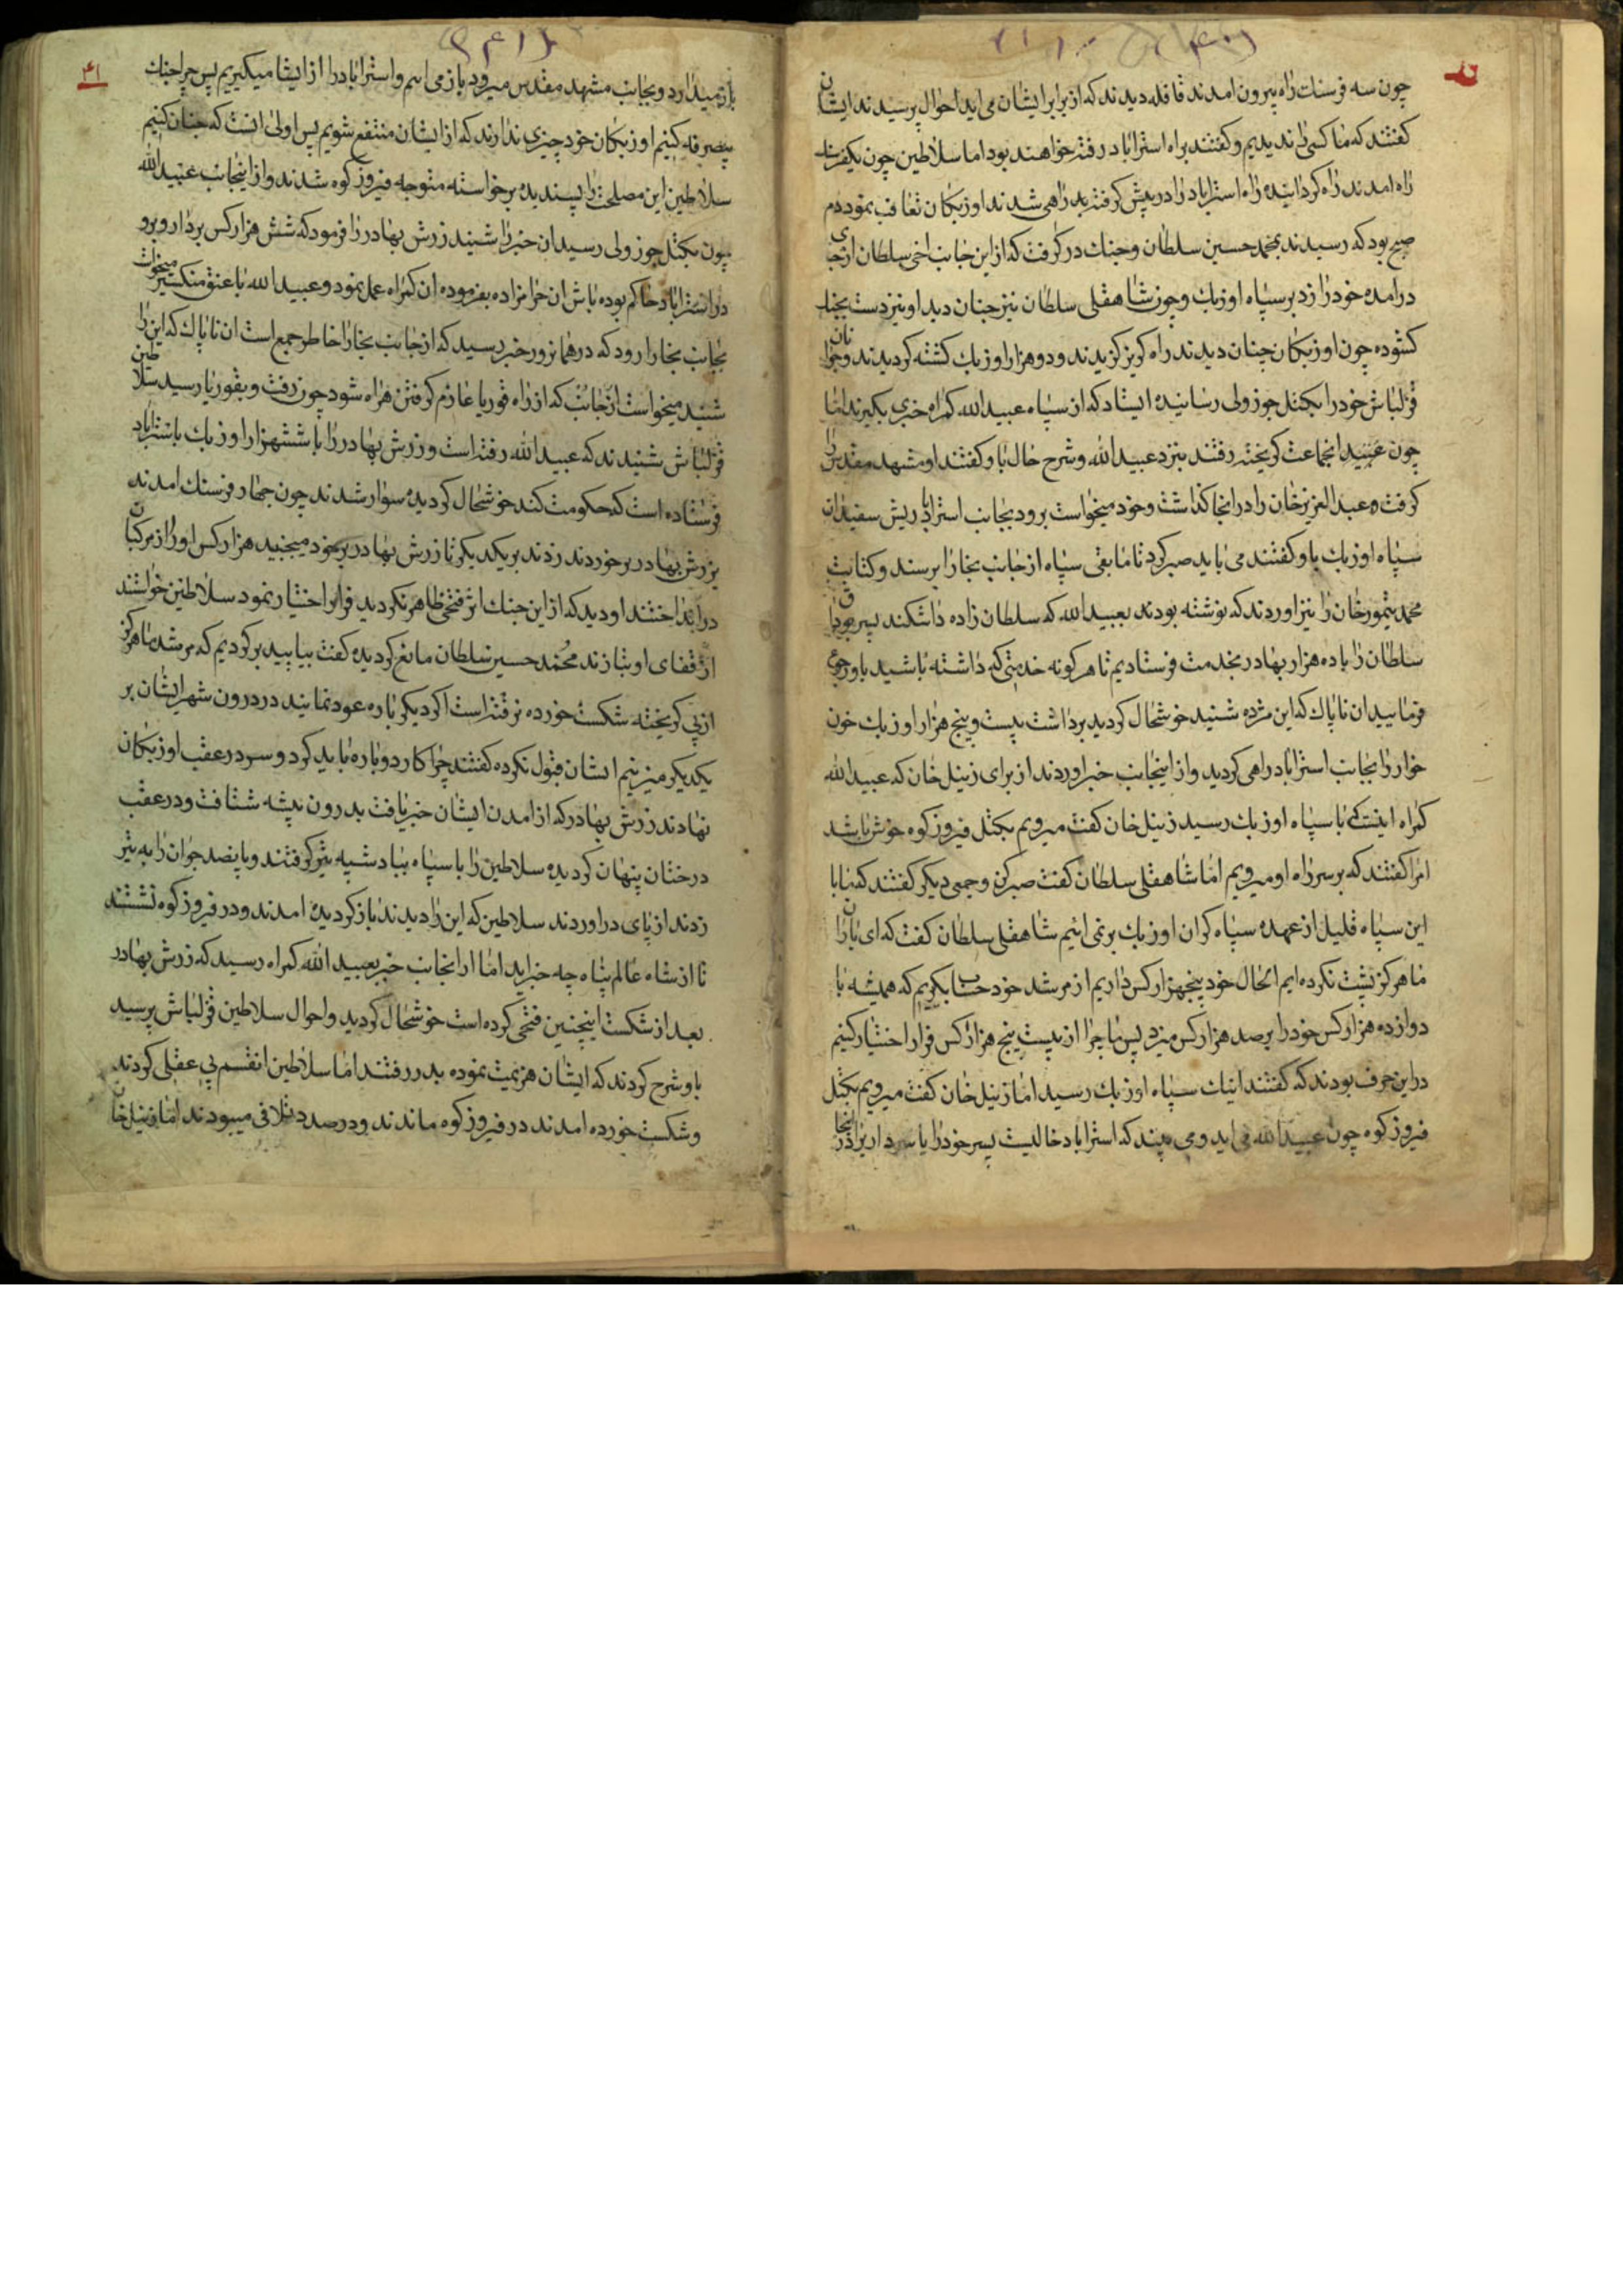 چون سه فرسنك راه بیرون امدند قافله دیدند که از برابر ایشان می اید احوال پرسیدند ایشان
کفتند که ما کسی را ندیدیم و کفتند براه استراباد رفته خواهند بود اما سلاطین چون یکفرسنك
راه امدند راه کردانیده راه استراباد را در پیش کرفته راهی شدند اوزبکان تعاقب نموده دم
صبح بود که رسیدند بمحمد حسین سلطان و جنك در کرفت که از این جانب اخی سلطان از جای
درامده خود را زد بر سپاه اوزبك و چون شاهقلی سلطان نیز چنان دید او نیز دست بجنك
کشوده چون اوزبکان چنان دیدند راه کریز کزیدند و دو هزار اوزبك کشته کردیدند و جوانان
قزلباش خود را بکتل جوزولی رسانیده ایستاد که از سپاه عبید الله کمراه خبری بکیرند اما
چون عبید انجماعت کریخته رفتند بنزد عبید الله و شرح حال باو کفتند او مشهد مقدس را
کرفت و عبد العزیز خان را در انجا کذاشت و خود میخواست برود بجانب استراباد ریش سفیدان
سپاه اوزبك باو کفتند می باید صبر کرد تا مابقی سپاه از جانب بخارا برسند و کتابت
محمد تیمور خان را نیز اوردند که نوشته بودند بعبید الله که سلطان زاده تاشکند پسر
سلطان را با ده هزار بهادر بخدمت فرستادیم تا هر کونه خدمتی که داشته باشید باو رجوع
فرمایید ان ناپاك که این مژده شنید خوشحال کردید برداشت بیست و پنج هزار اوزبك خون
خوار را بجانب استراباد راهی کردید و از اینجانب خبر اوردند از برای زینل خان که عبید الله
کمراه اینست که با سپاه اوزبك رسید زینل خان کفت میرویم بکتل فیروزکوه خوش باشد
امرا کفتند که بر سر راه او میرویم اما شاهقلی سلطان کفت صبر کن و جمعی دیکر کفتند که ما با
این سپاه قلیل از عهده سپاه کران اوزبك بر نمی ائیم شاهقلی سلطان کفت که ای یاران
ما هرکز پشت نکرده ایم الحال خود پنجهزار کس داریم از مرشد خود حساب بکیریم که همیشه با
دوازده هزار کس خود را بر صد هزار کس میزد پس ما چرا از بیست پنج هزار کس فرار اختیار کنیم
در این حرف بودند که کفتند اینك سپاه اوزبك رسید اما زینل خان کفت میرویم بکتل
فیروزکوه چون عبید الله می اید و می بیند که استراباد خالیست پسر خود را یا سرداریرا در انجا
۴۱
بازمیدارد و بجانب مشهد مقدس میرود باز می ایم و استراباد را از ایشان میکیریم پس چرا جنك
بیصرفه کنیم اوزبکان خود چیزی ندارند که از ایشان منتفع شویم پس اولی انست که چنان کنیم
سلاطین این مصلحت را پسندیده برخواسته متوجه فیروزکوه شدند و از اینجانب عبید الله
چون بکتل جوزولی رسید ان خبر را شنید زرش بهادر را فرمود که شش هزار کس بردار و برو
در استراباد حاکم بوده باش ان حرامزاده بفرموده ان کمراه عمل نمود و عبید الله میخواست
بجانب بخارا رود که در همانروز خبر رسید که از جانب بخارا خاطر جمع است ان ناپاك که این را
شنید میخواست از جانب که از راه قوریا عازم کرفتن هراه شود چون رفت و بقوریا رسید سلاطین
قزلباش شنیدند که عبید الله رفته است و زرش بهادر را با ششهزار اوزبك باستراباد
فرستاده است که حکومت کند خوشحال کردیده سوار شدند چون چهار فرسنك امدند
بزرش بهادر برخوردند زدند بر یکدیکر تا زرش بهادر بر خود میجنبید هزار کس او را از مرکبان
در انداختند او دید که از این جنك اثر فتحی ظاهر نکردید فرار اختیار نمود سلاطین خواستند
از قفای او بتازند محمد حسین سلطان مانع کردیده کفت بیایید برکردیم که مرشد ما هرکز
از پی کریخته شکست خورده نرفته است اکر دیکر باره عود نمایند در درون شهر ایشان بر
یکدیکر میزنیم ایشان قبول نکرده کفتند چرا کار دوباره باید کرد و سر در عقب اوزبکان
نهادند زرش بهادر که از امدن ایشان خبر یافت بدرون بیشه شتافت و در عقب
درختان پنهان کردیده سلاطین را با سپاه بباد شیبه تیر کرفتند و پانصد جوان را به تیر
زدند از پای در اوردند سلاطین که این را دیدند باز کردیده امدند و در فیروزکوه نشستند
تا از شاه عالم پناه چه خبر اید اما از انجانب خبر بعبید الله کمراه رسید که زرش بهادر
بعد از شکست اینچنین فتحی کرده است خوشحال کردید و احوال سلاطین قزلباش پرسید
باو شرح کردند که ایشان هزیمت نموده بدر رفتند اما سلاطین انقسم بی عقلی کردند
و شکست خورده امدند در فیروزکوه ماندند و در صدد تلافی میبودند اما زینل خان